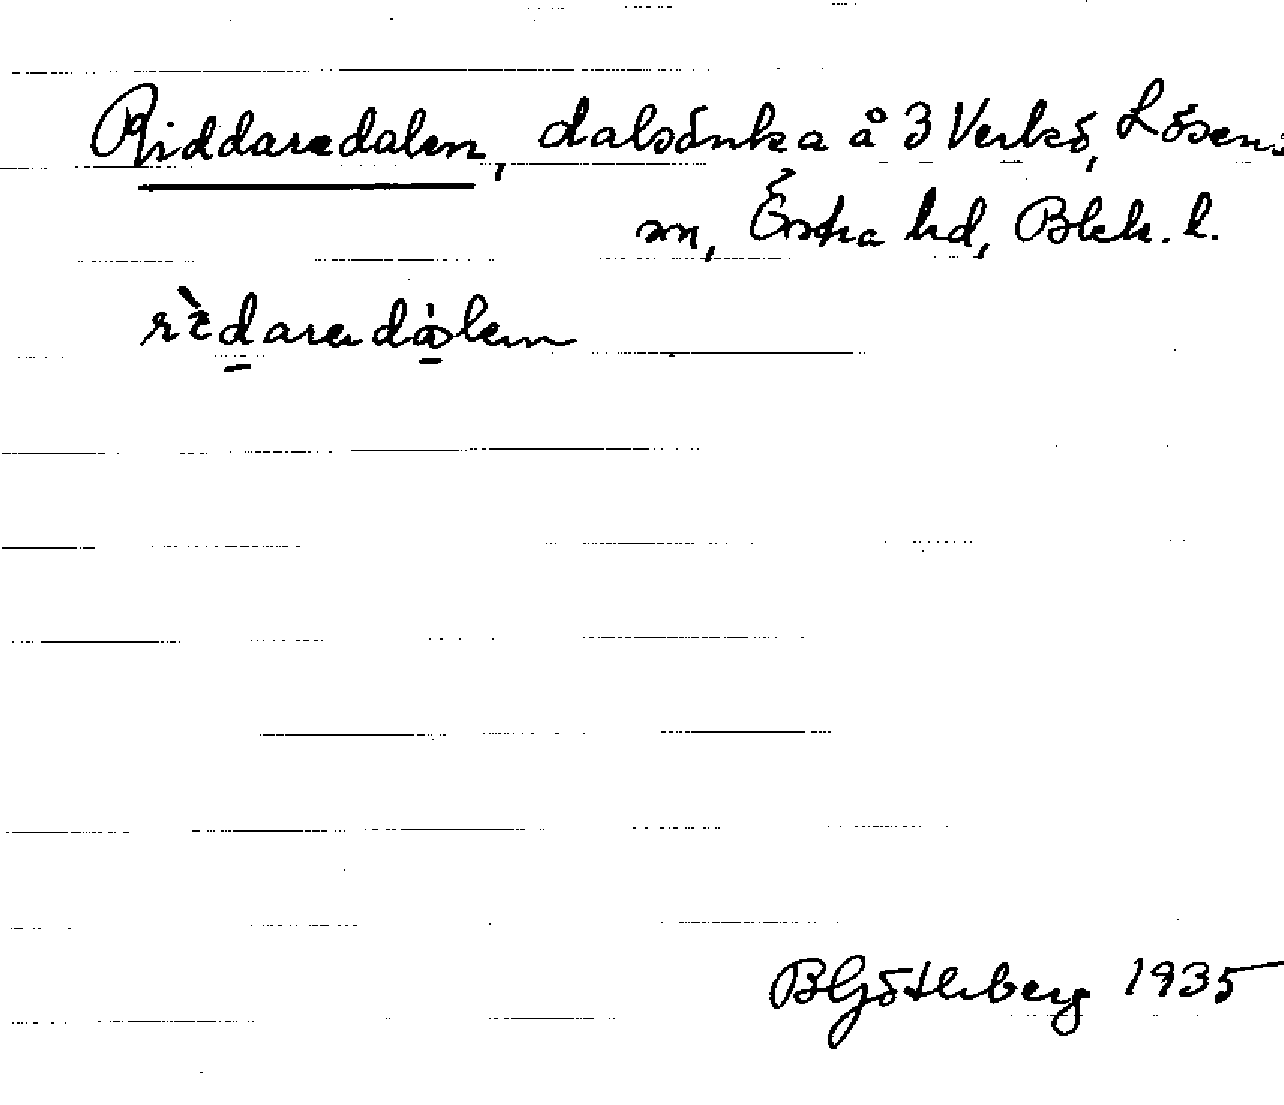 Riddaredalen, dalsänka å 3 Verkö, Lösens
sn, Östra hd, Blek. l.
BGöthberg 1935